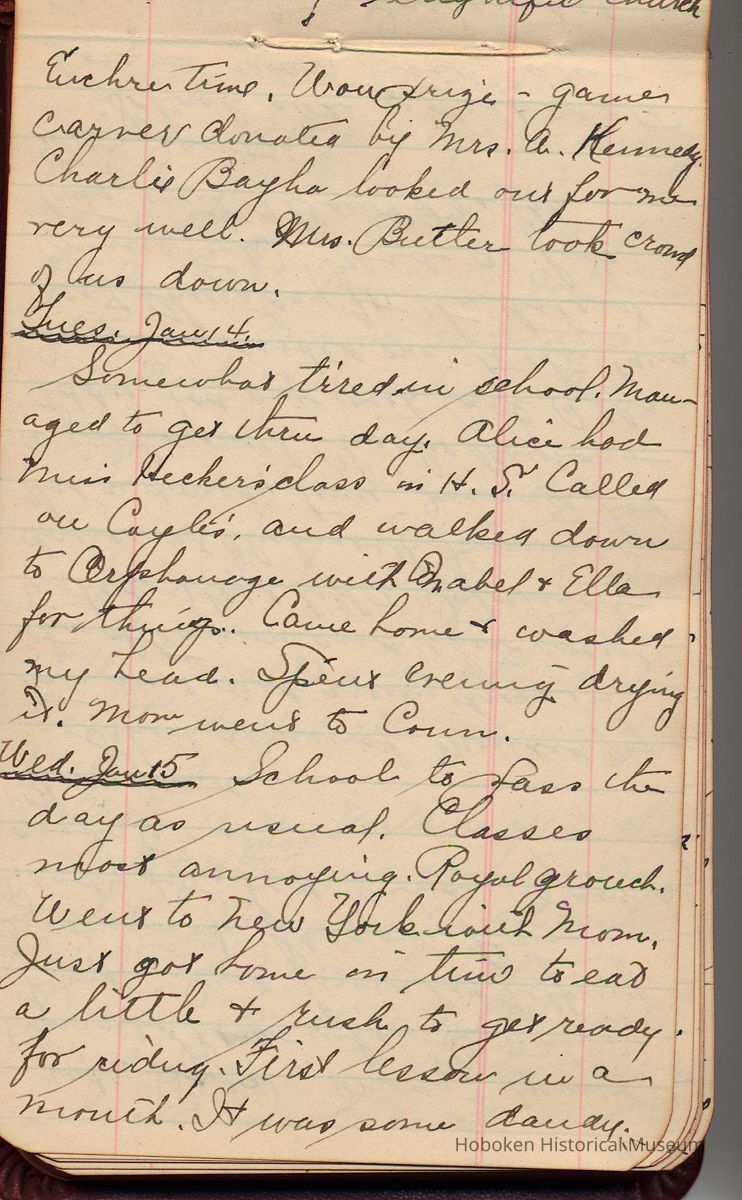 Church
Euchre time. Won prize - game
carver donated by Mrs. A. Kennedy.
Charlie Bayha looked out for me
very well. Mrs. Butler took crowd
of us down.
Tues. Jan 14.
Somewhat tired in school. Man-
aged to get thru day. Alice had
Miss Hecker's class in H. S. Called
on Coyle's, and walked down
to Orphanage with Mabel & Ella
for things. Came home & washed
my head. Spent evening drying
it. Mom went to Coun.
Wed. Jan 15 School to pass the
day as usual. Classes
most annoying. Royal grouch.
Went to New York with Mom.
Just got home in time to eat
a little & rush to get ready
for riding. First lesson in a
month. It was some dandy.
Hoboken Historical Museum